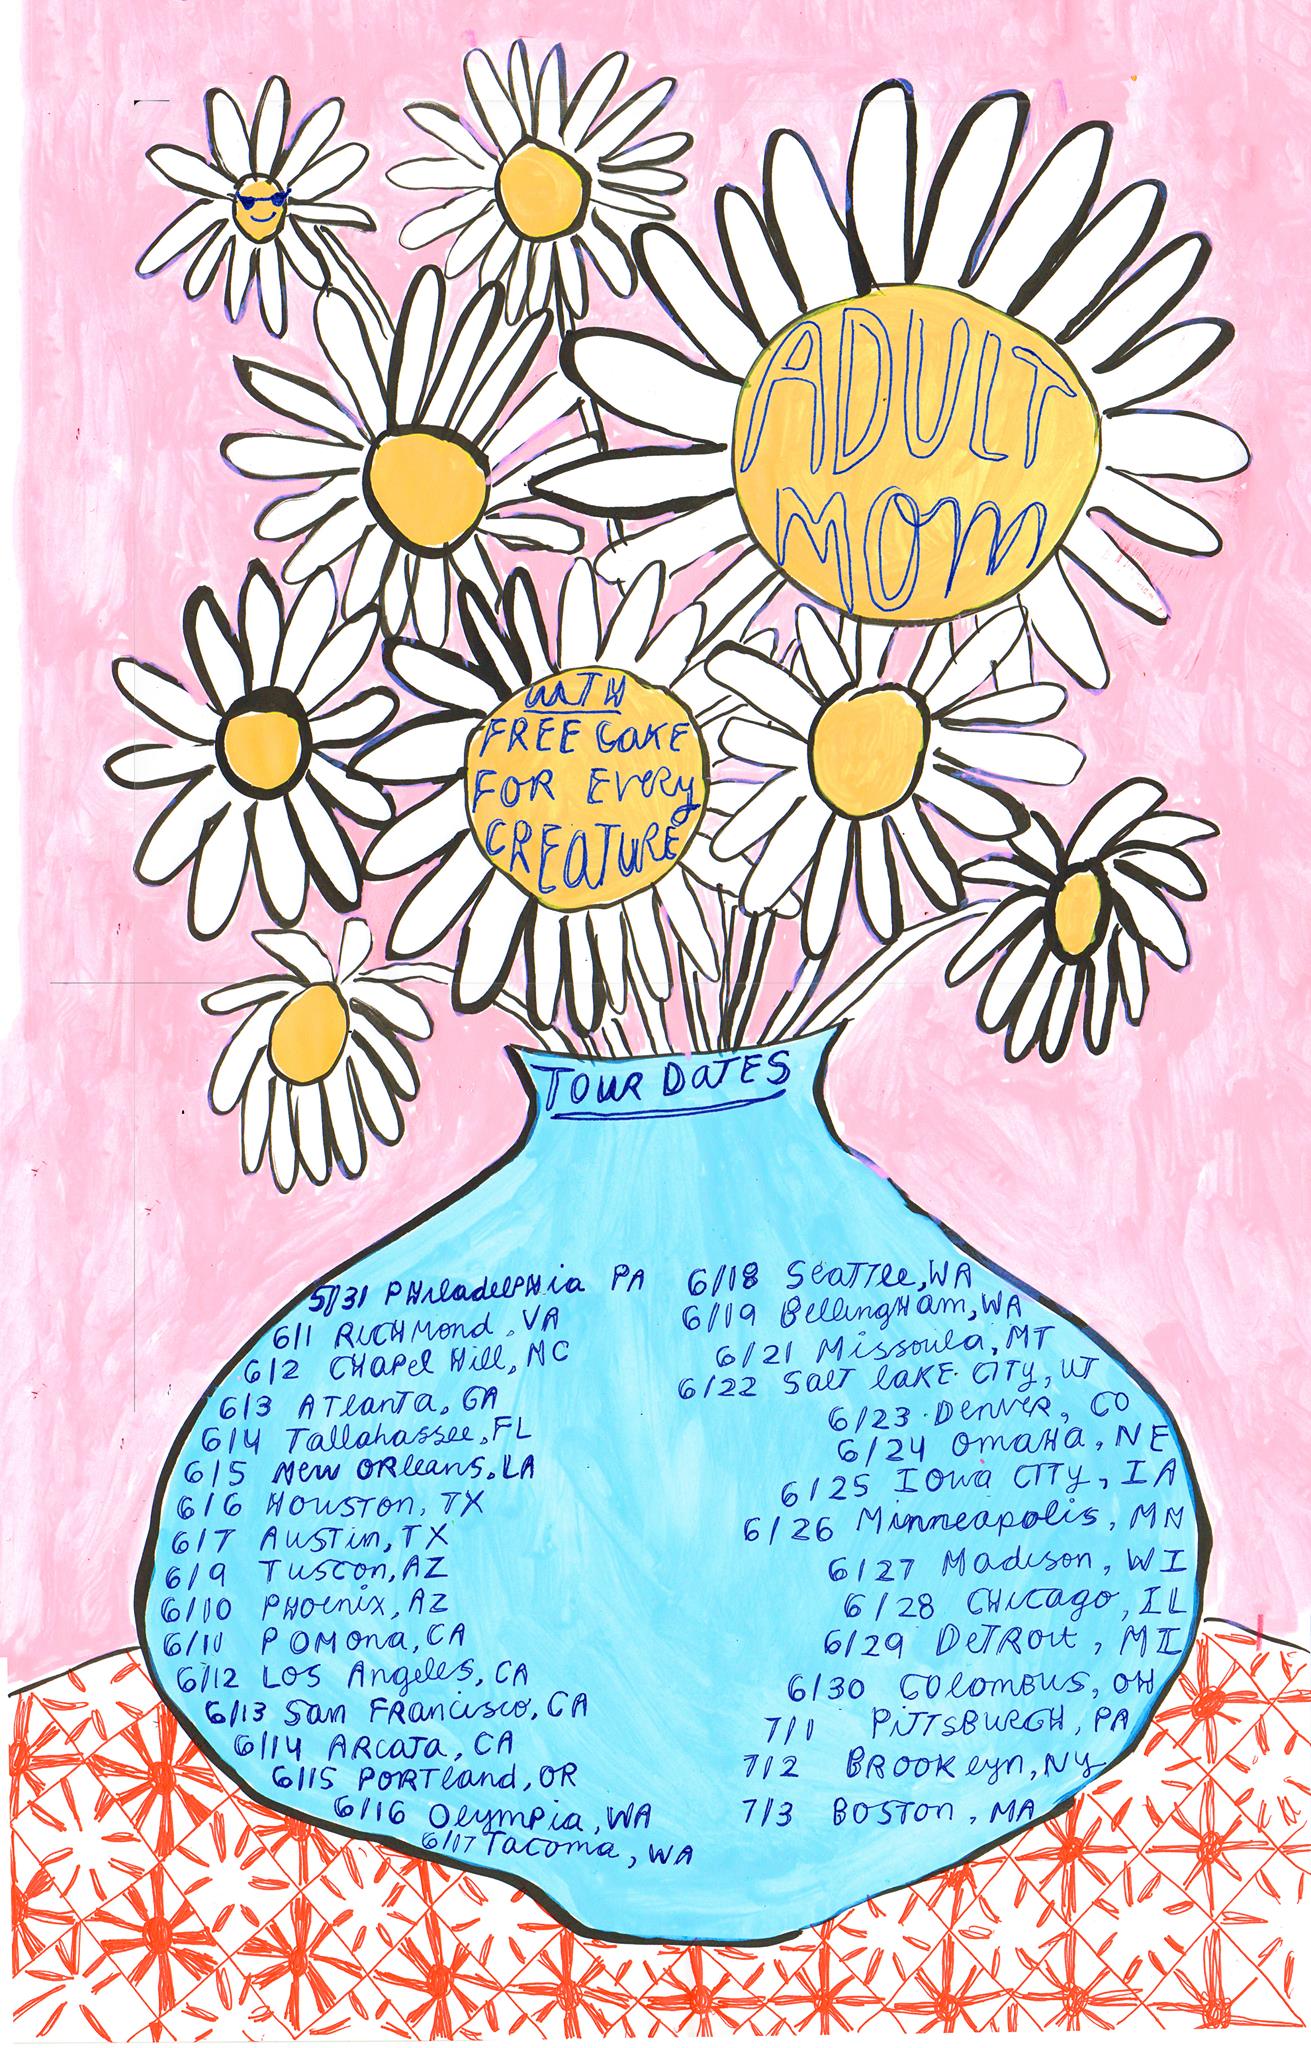 ADULT
MOM
WITH
FREE CAKE
FOR EVERY
CREATURE
TOUR DATES
5/31 PHILADELPHIA PA
6/1 RICHMOND, VA
6/2 CHAPEL HILL, NC
6/3 ATLANTA, GA
6/4 TALLAHASSEE, FL
6/5 NEW ORLEANS, LA
6/6 HOUSTON, TX
6/7 AUSTIN, TX
6/9 TUSCON, AZ
6/10 PHOENIX, AZ
6/11 POMONA, CA
6/12 LOS ANGELES, CA
6/13 SAN FRANCISCO, CA
6/14 ARCATA, CA
6/15 PORTLAND, OR
6/16 OLYMPIA, WA
6/17 TACOMA, WA
6/18 SEATTLE, WA
6/19 BELLINGHAM, WA
6/21 MISSOULA, MT
6/22 SALT LAKE CITY, UT
6/23 DENVER, CO
6/24 OMAHA, NE
6/25 IOWA CITY, IA
6/26 MINNEAPOLIS, MN
6/27 MADISON, WI
6/28 CHICAGO, IL
6/29 DETROIT, MI
6/30 COLOMBUS, OH
7/1 PITTSBURGH, PA
7/2 BROOKLYN, NY
7/3 BOSTON, MA